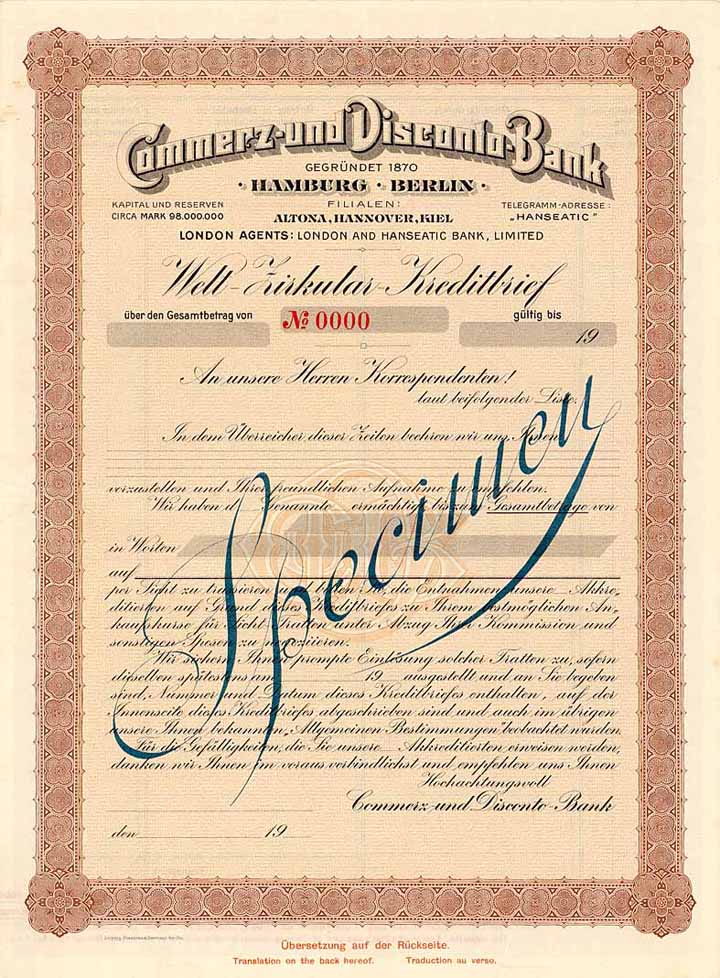 Commerz-und Disconto-Bank
GEGRÜNDET 1870
· HAMBURG · BERLIN ·
KAPITAL UND RESERVEN
CIRCA MARK 98.000.000
FILIALEN:
ALTONA, HANNOVER, KIEL
TELEGRAMM-ADRESSE:
„HANSEATIC"
LONDON AGENTS: LONDON AND HANSEATIC BANK, LIMITED
Welt-Zirkular-Kreditbrief
über den Gesamtbetrag von
№ 0000
gültig bis
19
An unsere Herren Korrespondenten!
laut beifolgender Liste.
In dem Überreicher dieser Zeilen beehren wir uns Ihnen
vorzustellen und Ihrer freundlichen Aufnahme zu empfehlen.
Wir haben d Genannte ermächtigt bis zum Gesamtbetrage von
in Worten
auf
per Sicht zu trassieren und bitten Sie, die Entnahmen unsere Akkre-
ditierten auf Grund dieses Kreditbriefes zu Ihrem bestmöglichen An-
kaufskurse für Sicht Tratten unter Abzug Ihrer Kommission und
sonstigen Spesen zu negoziieren.
Wir sichern Ihnen prompte Einlösung solcher Tratten zu, sofern
dieselben spätestens am 19 ausgestellt und an Sie begeben
sind, Nummer und Datum dieses Kreditbriefes enthalten, auf der
Innenseite dieses Kreditbriefes abgeschrieben sind und auch im übrigen
unsere Ihnen bekannten „Allgemeinen Bestimmungen" beobachtet wurden.
Für die Gefälligkeiten, die Sie unsere Akkreditierten erweisen werden,
danken wir Ihnen im voraus verbindlichst und empfehlen uns Ihnen
Hochachtungsvoll
Commerz-und Disconto-Bank
den 19
Specimen
Übersetzung auf der Rückseite.
Translation on the back hereof. Traduction au verso.